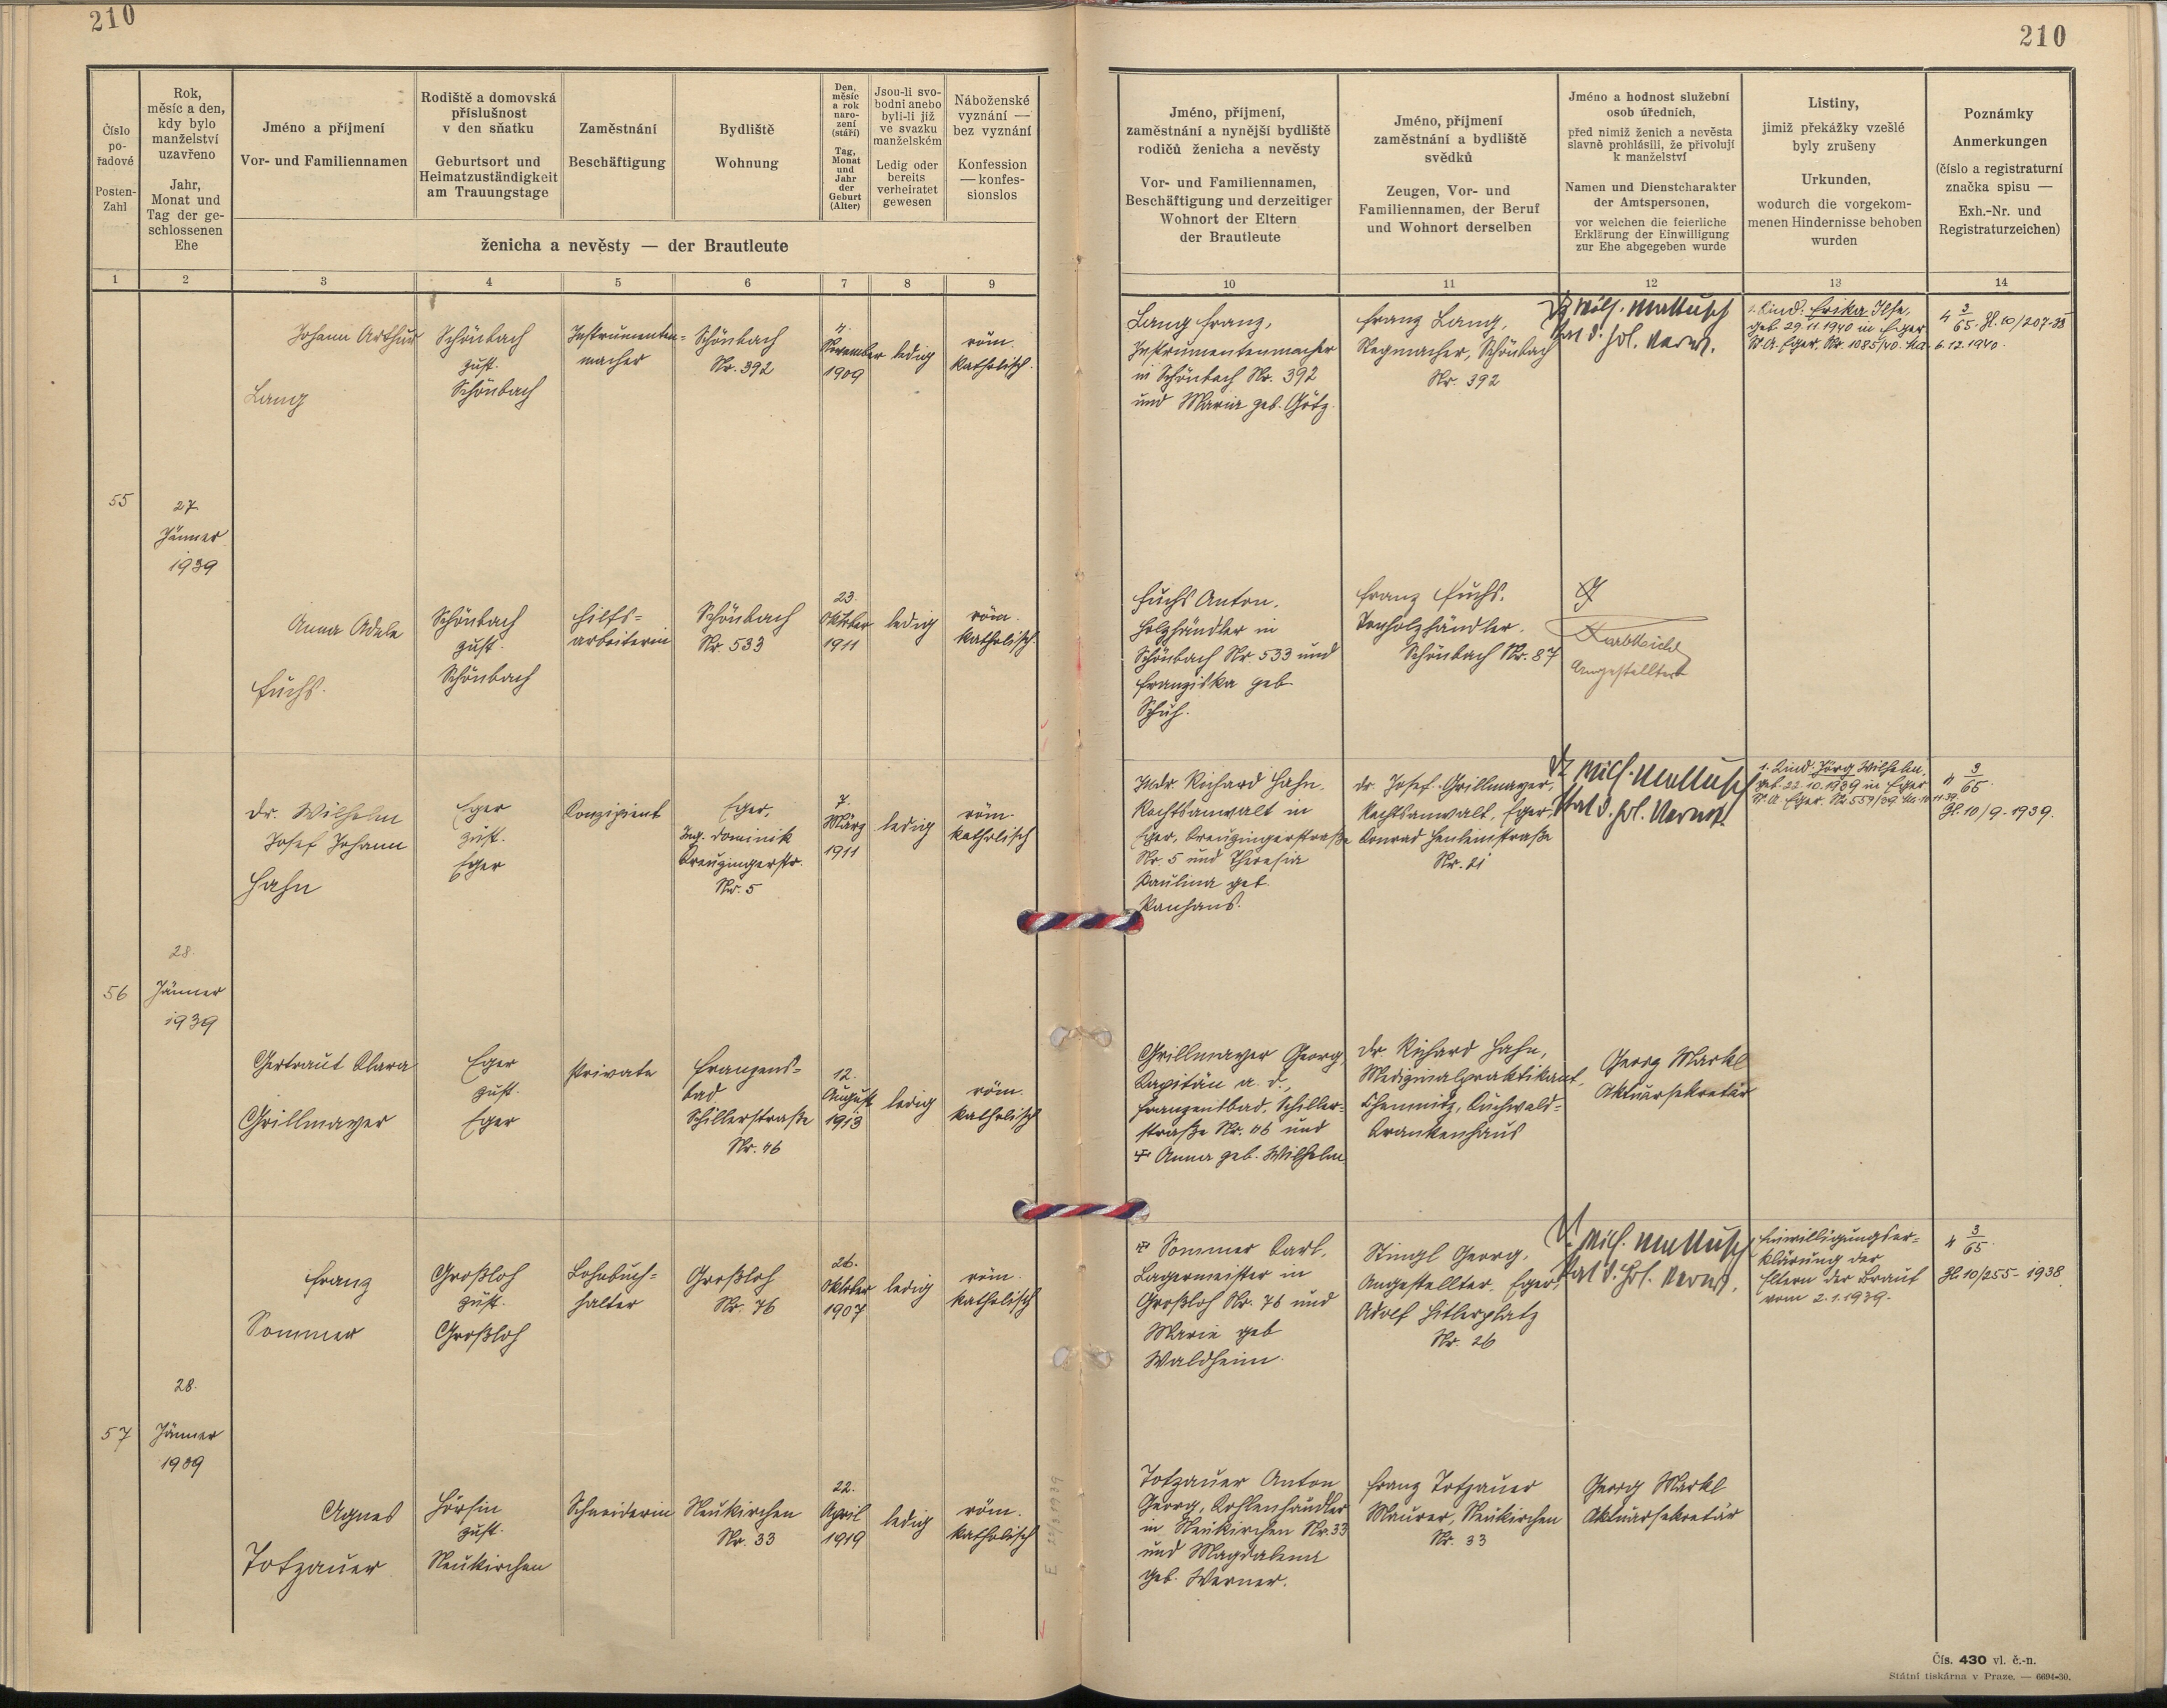 210
210
Číslo pořadové
Posten-Zahl
Rok,
měsíc a den,
kdy bylo
manželství
uzavřeno
Jahr,
Monat und
Tag der ge-
schlossenen
Ehe
Jméno a příjmení
Vor- und Familiennamen
Rodiště a domovská
příslušnost
v den sňatku
Geburtsort und
Heimatzuständigkeit
am Trauungstage
Zaměstnání
Beschäftigung
Bydliště
Wohnung
Den,
měsíc
a rok
naro-
zení
(stáří)
Tag,
Monat
und
Jahr
der
Geburt
(Alter)
Jsou-li svo-
bodni anebo
byli-li již
ve svazku
manželském
Ledig oder
bereits
verheiratet
gewesen
Náboženské
vyznání —
bez vyznání
Konfession
— konfes-
sionslos
ženicha a nevěsty — der Brautleute
Jméno, příjmení,
zaměstnání a nynější bydliště
rodičů ženicha a nevěsty
Vor- und Familiennamen,
Beschäftigung und derzeitiger
Wohnort der Eltern
der Brautleute
Jméno, příjmení
zaměstnání a bydliště
svědků
Zeugen, Vor- und
Familiennamen, der Beruf
und Wohnort derselben
Jméno a hodnost služební
osob úředních,
před nimiž ženich a nevěsta
slavně prohlásili, že přivolují
k manželství
Namen und Dienstcharakter
der Amtspersonen,
vor welchen die feierliche
Erklärung der Einwilligung
zur Ehe abgegeben wurde
Listiny,
jimiž překážky vzešlé
byly zrušeny
Urkunden,
wodurch die vorgekom-
menen Hindernisse behoben
wurden
Poznámky
Anmerkungen
(číslo a registraturní
značka spisu —
Exh.-Nr. und
Registraturzeichen)
1 2 3 4 5 6 7 8 9 10 11 12 13 14
55
27.
Jänner
1939
Johann Arthur
Lang
Schönbach
zust.
Schönbach
Instrumenten-
macher
Schönbach
Nr. 392
4.
November
1909
ledig
röm.
katholisch.
Lang Franz,
Instrumentenmacher
in Schönbach Nr. 392
und Maria geb. Götz.
Franz Lang,
Stegmacher, Schönbach
Nr. 392
1. Kind: Erika Ilse,
geb. 29.11.1940 in Eger
St. A. Eger, Nr. 1085/40.
6.12.1940.
4 3/65. Zl. 10/207-38
Anna Adele
Fuchs.
Schönbach
zust.
Schönbach
Hilfs-
arbeiterin
Schönbach
Nr. 533
23.
Oktober
1911
ledig
röm.
katholisch.
Fuchs Anton.
Holzhändler in
Schönbach Nr. 533 und
Franziska geb.
Schuh.
Franz Fuchs.
Tonholzhändler.
Schönbach Nr. 87
Angestellter
56
28.
Jänner
1939
Dr. Wilhelm
Josef Johann
Hahn
Eger
zust.
Eger
Konzipient
Eger,
Ing. Dominik
Kreuzingerstr.
Nr. 5
7.
März
1911
ledig
röm.
katholisch
Richard Hahn.
Rechtsanwalt in
Eger, Kreuzingerstraße
Nr. 5 und Theresia
Paulina geb.
Panhans.
Dr. Josef Grillmayer,
Rechtsanwalt, Eger,
Konrad Henleinstraße
Nr. 21
1. Kind: Jörg Wilhelm,
geb. 22.10.1939 in Eger
St. A. Eger, Nr. 559/39.
4 3/65.
Zl. 10/9. 1939.
Gertraut Klara
Grillmayer
Eger
zust.
Eger
Private
Franzens-
bad
Schillerstraße
Nr. 46
12.
August
1913
ledig
röm.
katholisch
Grillmayer Georg,
Kapitän a. d.,
Franzensbad, Schiller-
straße Nr. 46 und
Anna geb. Wilhelm
Dr. Richard Hahn,
Medizinalpraktikant,
Chemnitz, Küchwald-
Krankenhaus
Georg Markl
Aktuarsekretär
57
28.
Jänner
1939
Franz
Sommer
Großloh
zust.
Großloh
Lohnbuch-
halter
Großloh
Nr. 76
26.
Oktober
1907
ledig
röm.
katholisch
Sommer Karl,
Lagermeister in
Großloh Nr. 76 und
Marie geb
Waldheim.
Stingl Georg,
Angestellter, Eger,
Adolf Hitlerplatz
Nr. 26
Einwilligungser-
klärung der
Eltern der Braut
vom 2.1.1939.
4 3/65.
Zl. 10/255-1938
Agnes
Totzauer
Hörsin
zust.
Neukirchen
Schneiderin
Neukirchen
Nr. 33
22.
April
1919
ledig
röm.
katholisch
Totzauer Anton
Georg, Kohlenhändler
in Neukirchen Nr. 33
und Magdalena
geb. Werner.
Franz Totzauer
Maurer, Neukirchen
Nr. 33
Georg Markl
Aktuarsekretär
Čís. 430 vl. č.-n.
Státní tiskárna v Praze. — 6694-30.